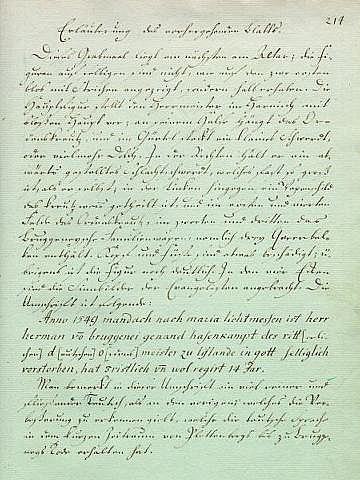 214
Erläuterung des vorhergehenden Blatts.
Dieses Grabmaal liegt am nächsten am Altar; die Fi-
guren auf selbigem sind nicht, wie auf den zwei ersten
blos mit Strichen angezeigt, sondern halb erhaben. Die
Hauptfigur stellt den Herrmeister im Harnisch mit
bloßem Haupt vor; an seinem Halse hängt das Or-
denskreutz, und im Gürtel steckt ein kleines Schwerdt,
oder vielmehr Dolch. In der Rechten hält er ein ab-
wärts gestelltes Schlachtschwerdt, welches fast so groß
ist, als er selbst; in der linken hingegen ein Wapenschild
das kreutzweis getheilt ist und im ersten und vierten
Felde das Ordenskreutz, im zweiten und dritten das
Bruggeneysche Familienwapen, nemlich drey Querrbal-
ken enthält. Kopf und Füsse sind etwas beschädigt; u
übrigens ist die Figur noch deutlich. In den vier Ecken
sind die Sinnbilder der Evangelisten angebracht. Die
Umschrift ist folgende:
Anno 1549 mandach nach maria lichtmessen ist herr
herman vō bruggenei genannd hasenkampt des ritt[er]li-
chen] d[eutschen] o[rdens] meister zu lyflande in gott selliglich
verstorben, hat cristlich vn wol regirt 14 Jar.
Man bemerkt in dieser Umschrift ein viel reiner und
Teutsch, als in den vorigen; welches die Ver-
besserung zu erkennen giebt, welche die teutsche Sprache
in dem kurzen Zeitraum von Plettenbergs bis zu Brügge-
neys Tode erhalten hat.